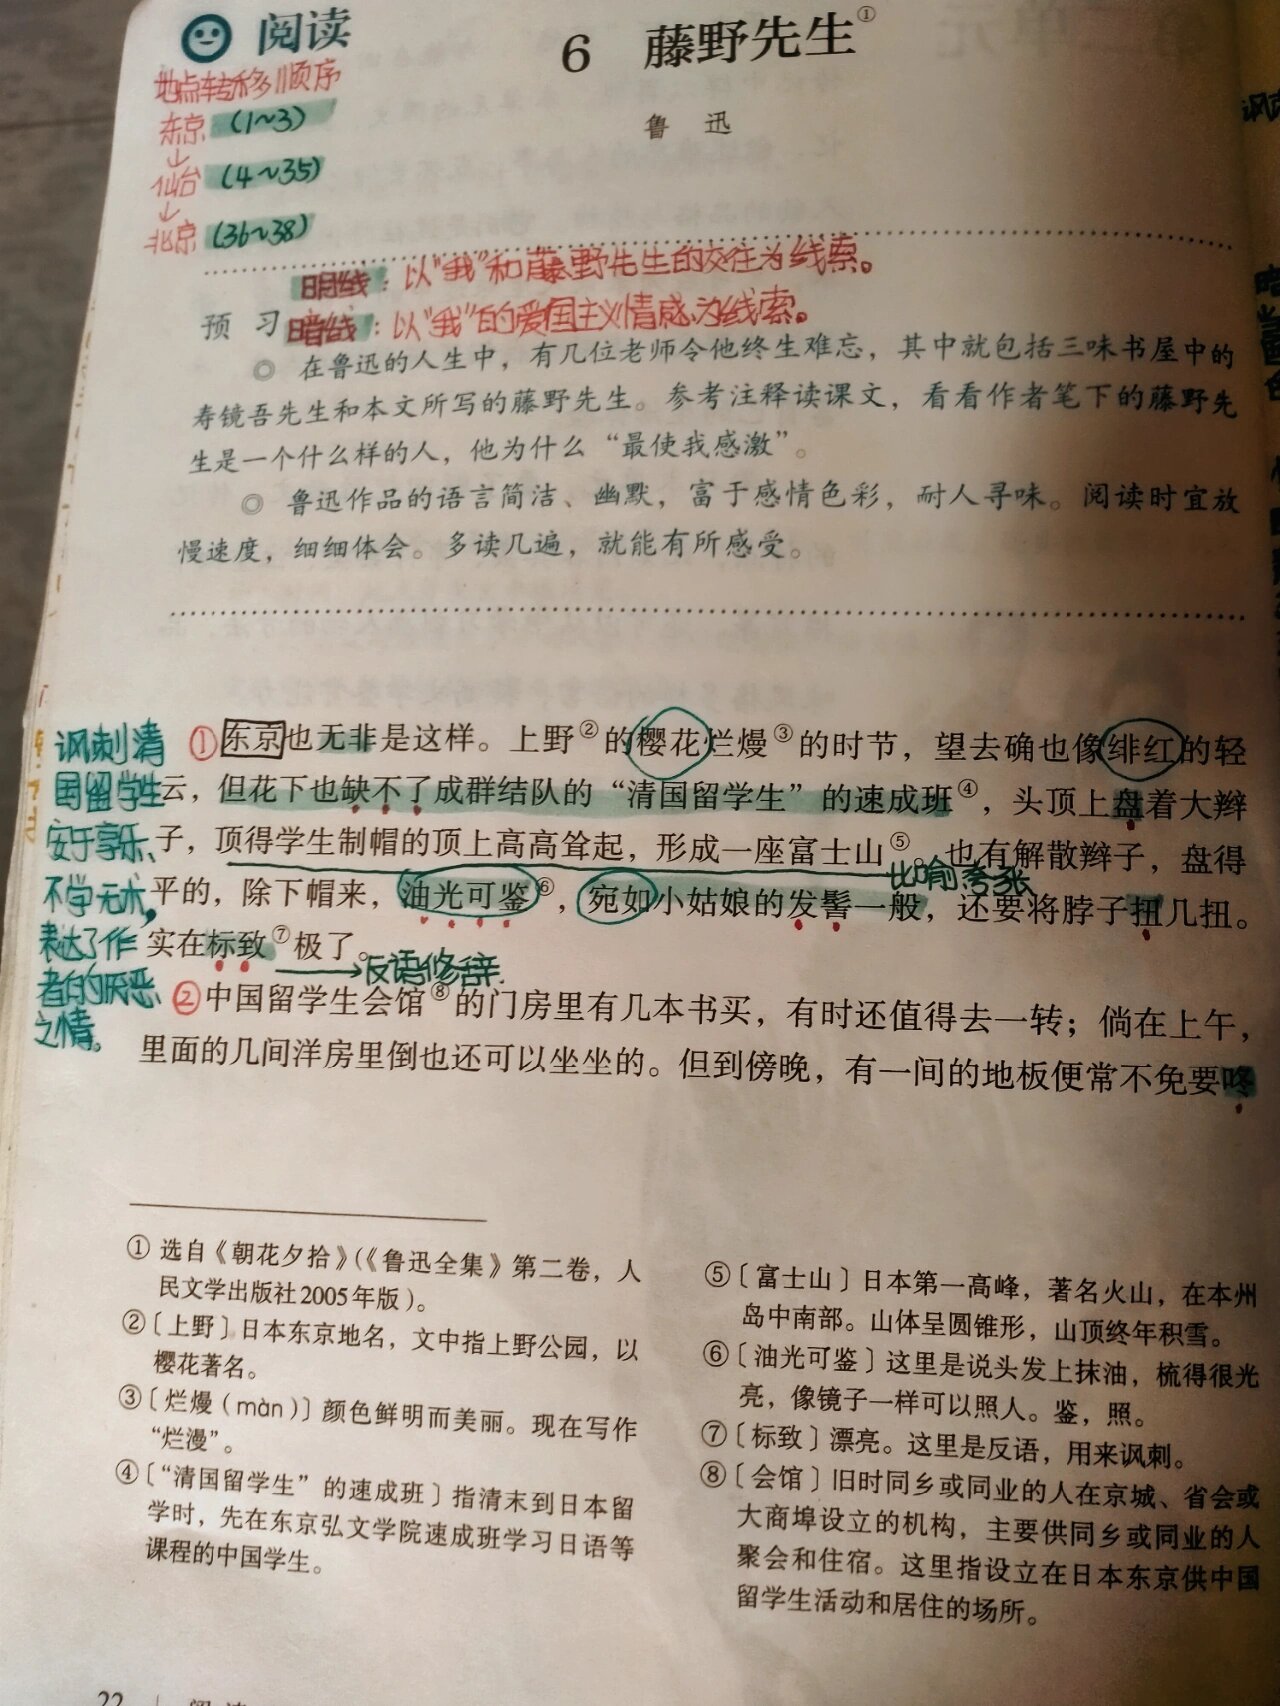 阅读
6 藤野先生①
鲁 迅
地点转移顺序
东京 (1~3)
↓
仙台 (4~35)
↓
北京 (36~38)
明线：以“我”和藤野先生的交往为线索。
暗线：以“我”的爱国主义情感为线索。
预 习
◎ 在鲁迅的人生中，有几位老师令他终生难忘，其中就包括三味书屋中的
寿镜吾先生和本文所写的藤野先生。参考注释读课文，看看作者笔下的藤野先
生是一个什么样的人，他为什么“最使我感激”。
◎ 鲁迅作品的语言简洁、幽默，富于感情色彩，耐人寻味。阅读时宜放
慢速度，细细体会。多读几遍，就能有所感受。
讽刺清
国留学生
安于享乐、
不学无术，
表达了作
者的厌恶
之情。
①东京也无非是这样。上野②的樱花烂熳③的时节，望去确也像绯红的轻
云，但花下也缺不了成群结队的“清国留学生”的速成班④，头顶上盘着大辫
子，顶得学生制帽的顶上高高耸起，形成一座富士山⑤。也有解散辫子，盘得
比喻夸张
平的，除下帽来，油光可鉴⑥，宛如小姑娘的发髻一般，还要将脖子扭几扭。
实在标致⑦极了。
反语修辞.
②中国留学生会馆⑧的门房里有几本书买，有时还值得去一转；倘在上午，
里面的几间洋房里倒也还可以坐坐的。但到傍晚，有一间的地板便常不免要咚
① 选自《朝花夕拾》(《鲁迅全集》第二卷，人
民文学出版社2005年版)。
②〔上野〕日本东京地名，文中指上野公园，以
樱花著名。
③〔烂熳（màn）〕颜色鲜明而美丽。现在写作
“烂漫”。
④〔“清国留学生”的速成班〕指清末到日本留
学时，先在东京弘文学院速成班学习日语等
课程的中国学生。
⑤〔富士山〕日本第一高峰，著名火山，在本州
岛中南部。山体呈圆锥形，山顶终年积雪。
⑥〔油光可鉴〕这里是说头发上抹油，梳得很光
亮，像镜子一样可以照人。鉴，照。
⑦〔标致〕漂亮。这里是反语，用来讽刺。
⑧〔会馆〕旧时同乡或同业的人在京城、省会或
大商埠设立的机构，主要供同乡或同业的人
聚会和住宿。这里指设立在日本东京供中国
留学生活动和居住的场所。
22